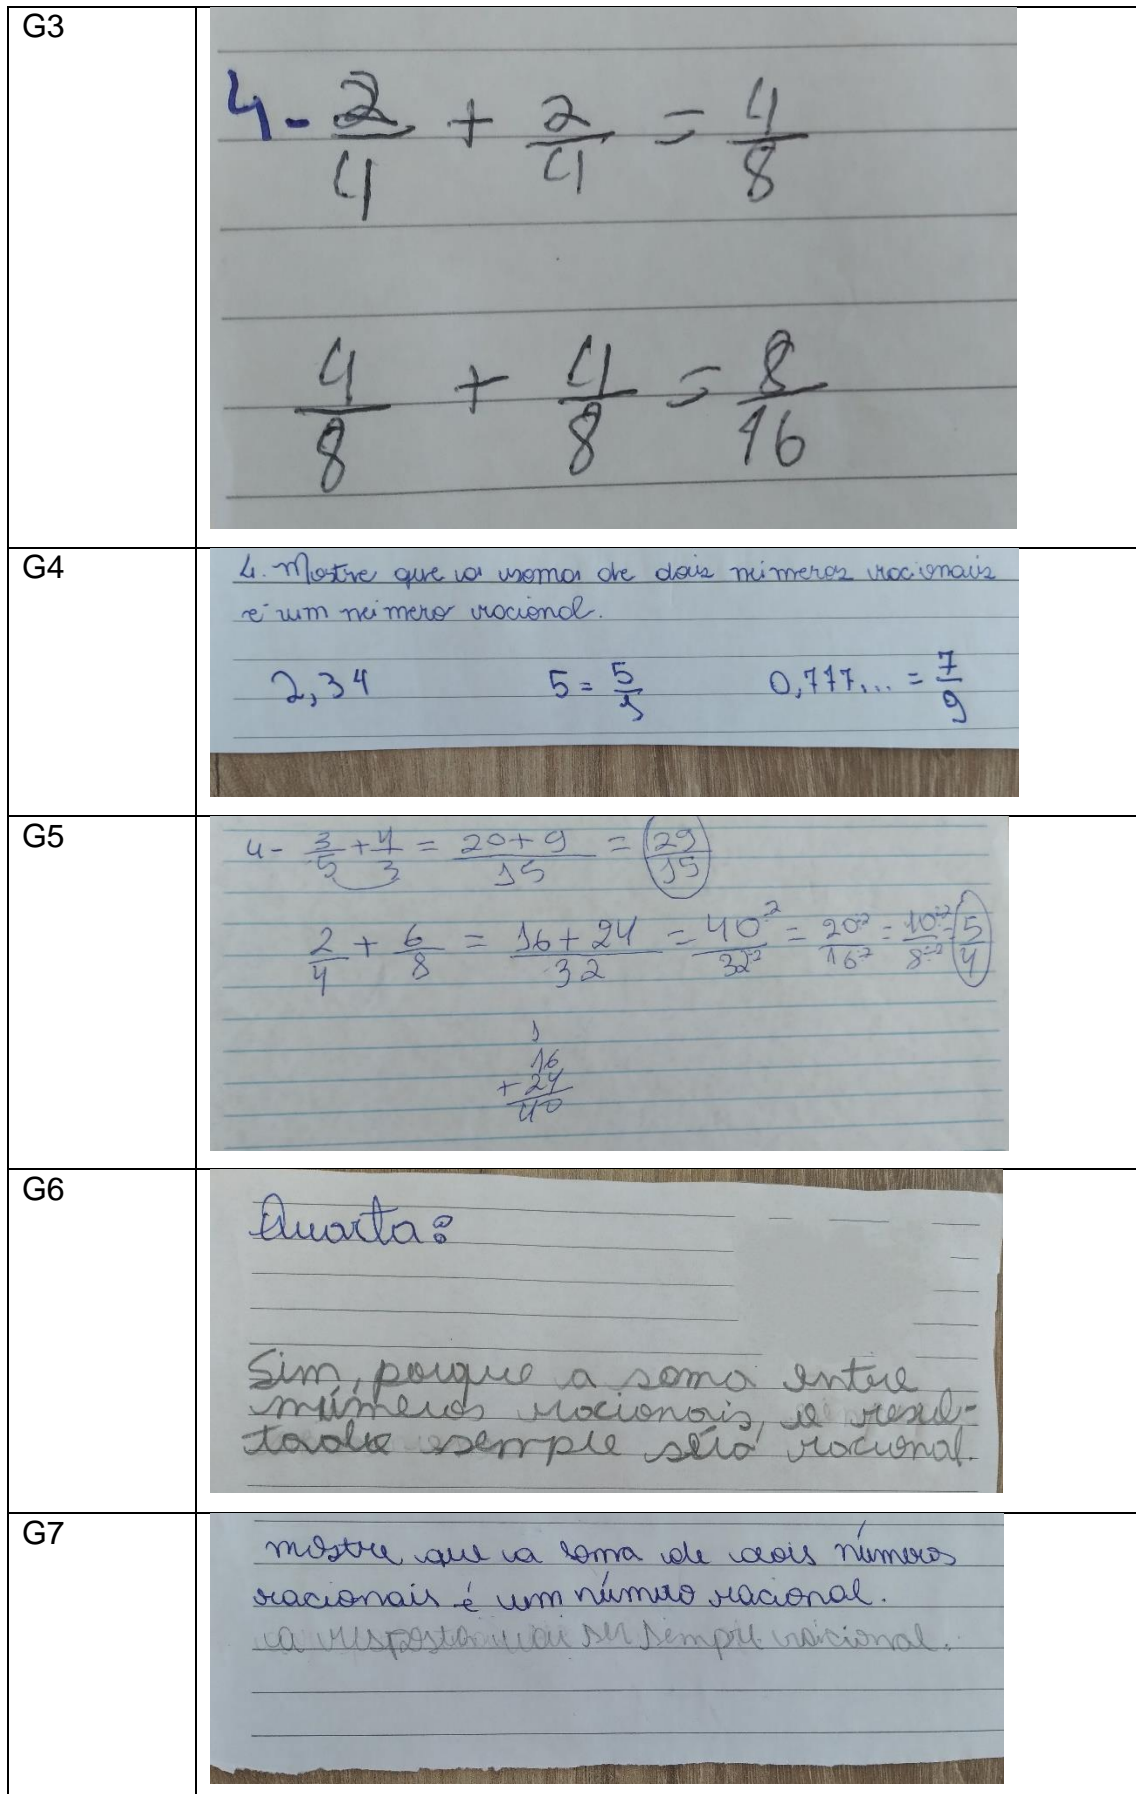 G3
4- 2/4 + 2/4 = 4/8
4/8 + 4/8 = 8/16
G4
4. Mostre que a soma de dois números racionais
é um número racional.
2,34 5 = 5/1 0,777... = 7/9
G5
4- 3/5 + 4/3 = 20+9/15 = 29/15
2/4 + 6/8 = 16+24/32 = 40÷2/32÷2 = 20÷2/16÷2 = 10÷2/8÷2 = 5/4
1
16
+ 24
40
G6
Quarta:
Sim, porque a soma entre
números racionais, o resul-
tado sempre será racional.
G7
mostre que a soma de dois números
racionais é um número racional.
a resposta vai ser sempre racional.